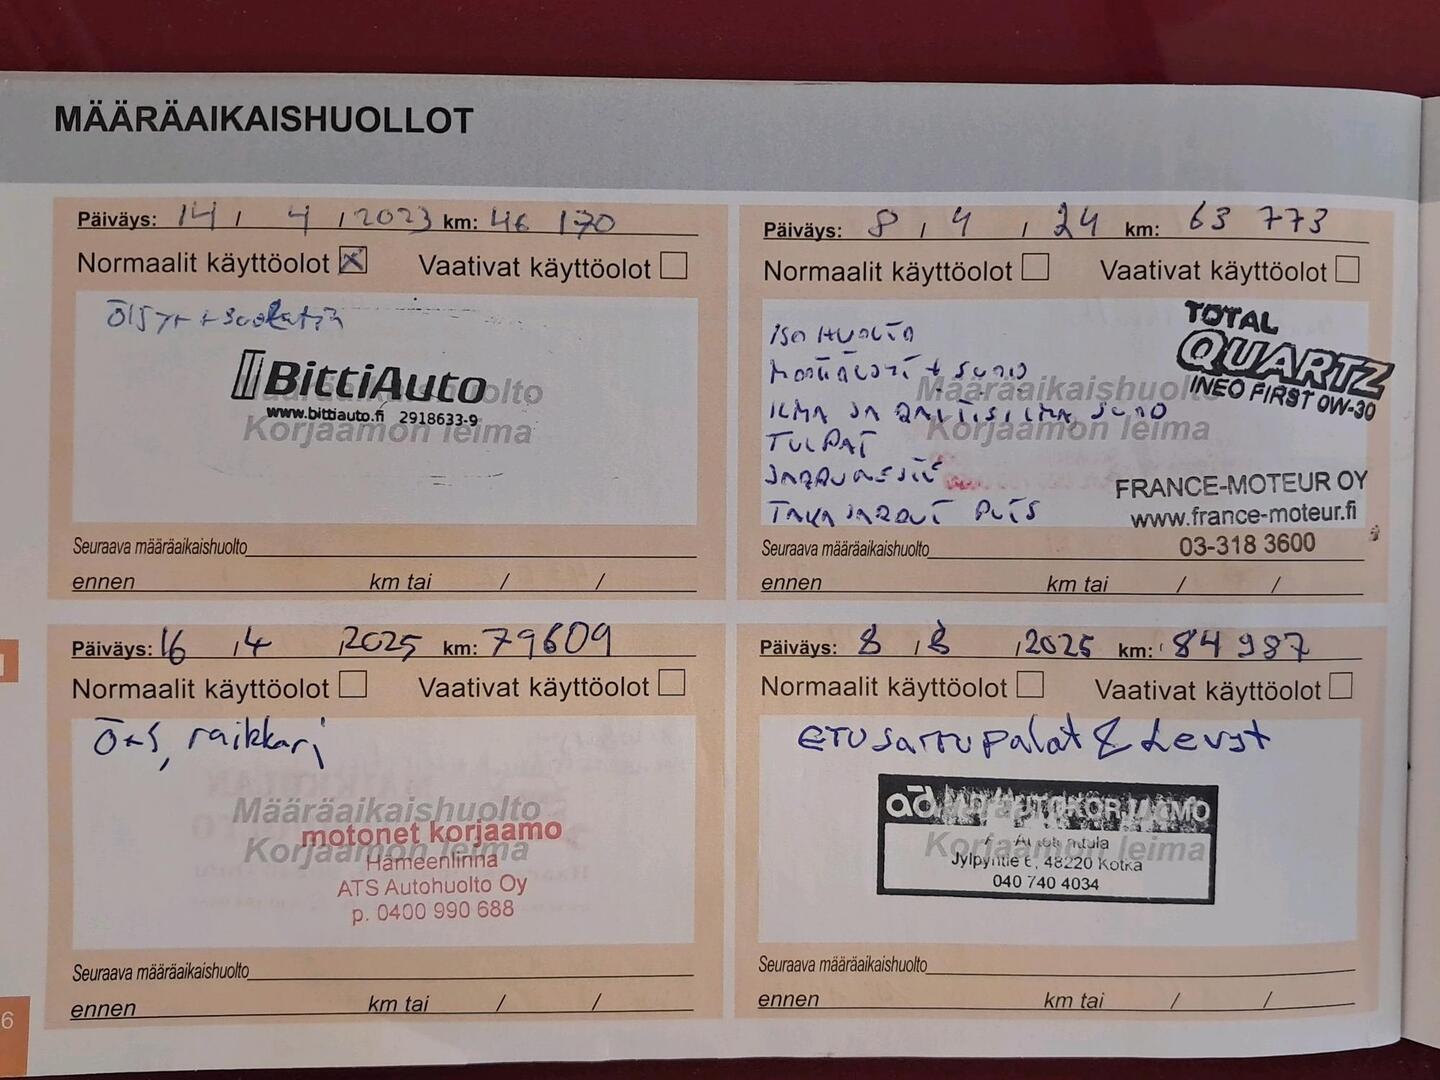 MÄÄRÄAIKAISHUOLLOT
Päiväys: 14 / 4 / 2023 km: 46 170
Normaalit käyttöolot ☒ Vaativat käyttöolot ☐
Öljyt + suodatin
BittiAuto
www.bittiauto.fi 2918633-9
Määräaikaishuolto
Korjaamon leima
Seuraava määräaikaishuolto
ennen km tai / /
Päiväys: 8 / 4 / 24 km: 63 773
Normaalit käyttöolot ☐ Vaativat käyttöolot ☐
ISO HUOLTO
MOTTIÖLJYT + SUOD
ILMA JA RAITISILMA SUOD
TULPAT
JARRUNESTE
TAKA JARRUT PUTS
TOTAL
QUARTZ
INEO FIRST 0W-30
Määräaikaishuolto
Korjaamon leima
FRANCE-MOTEUR OY
www.france-moteur.fi
03-318 3600
Seuraava määräaikaishuolto
ennen km tai / /
Päiväys: 16 / 4 / 2025 km: 79609
Normaalit käyttöolot ☐ Vaativat käyttöolot ☐
Ö+S, raikkari
Määräaikaishuolto
motonet korjaamo
Korjaamon leima
Hämeenlinna
ATS Autohuolto Oy
p. 0400 990 688
Seuraava määräaikaishuolto
ennen km tai / /
Päiväys: 8 / 8 / 2025 km: 84 987
Normaalit käyttöolot ☐ Vaativat käyttöolot ☐
ETUJARRUPALAT & Levyt
ad AUTOKORJAAMO
Määräaikaishuolto
Korjaamon leima
Jylpyntie 6, 48220 Kotka
040 740 4034
Seuraava määräaikaishuolto
ennen km tai / /
6